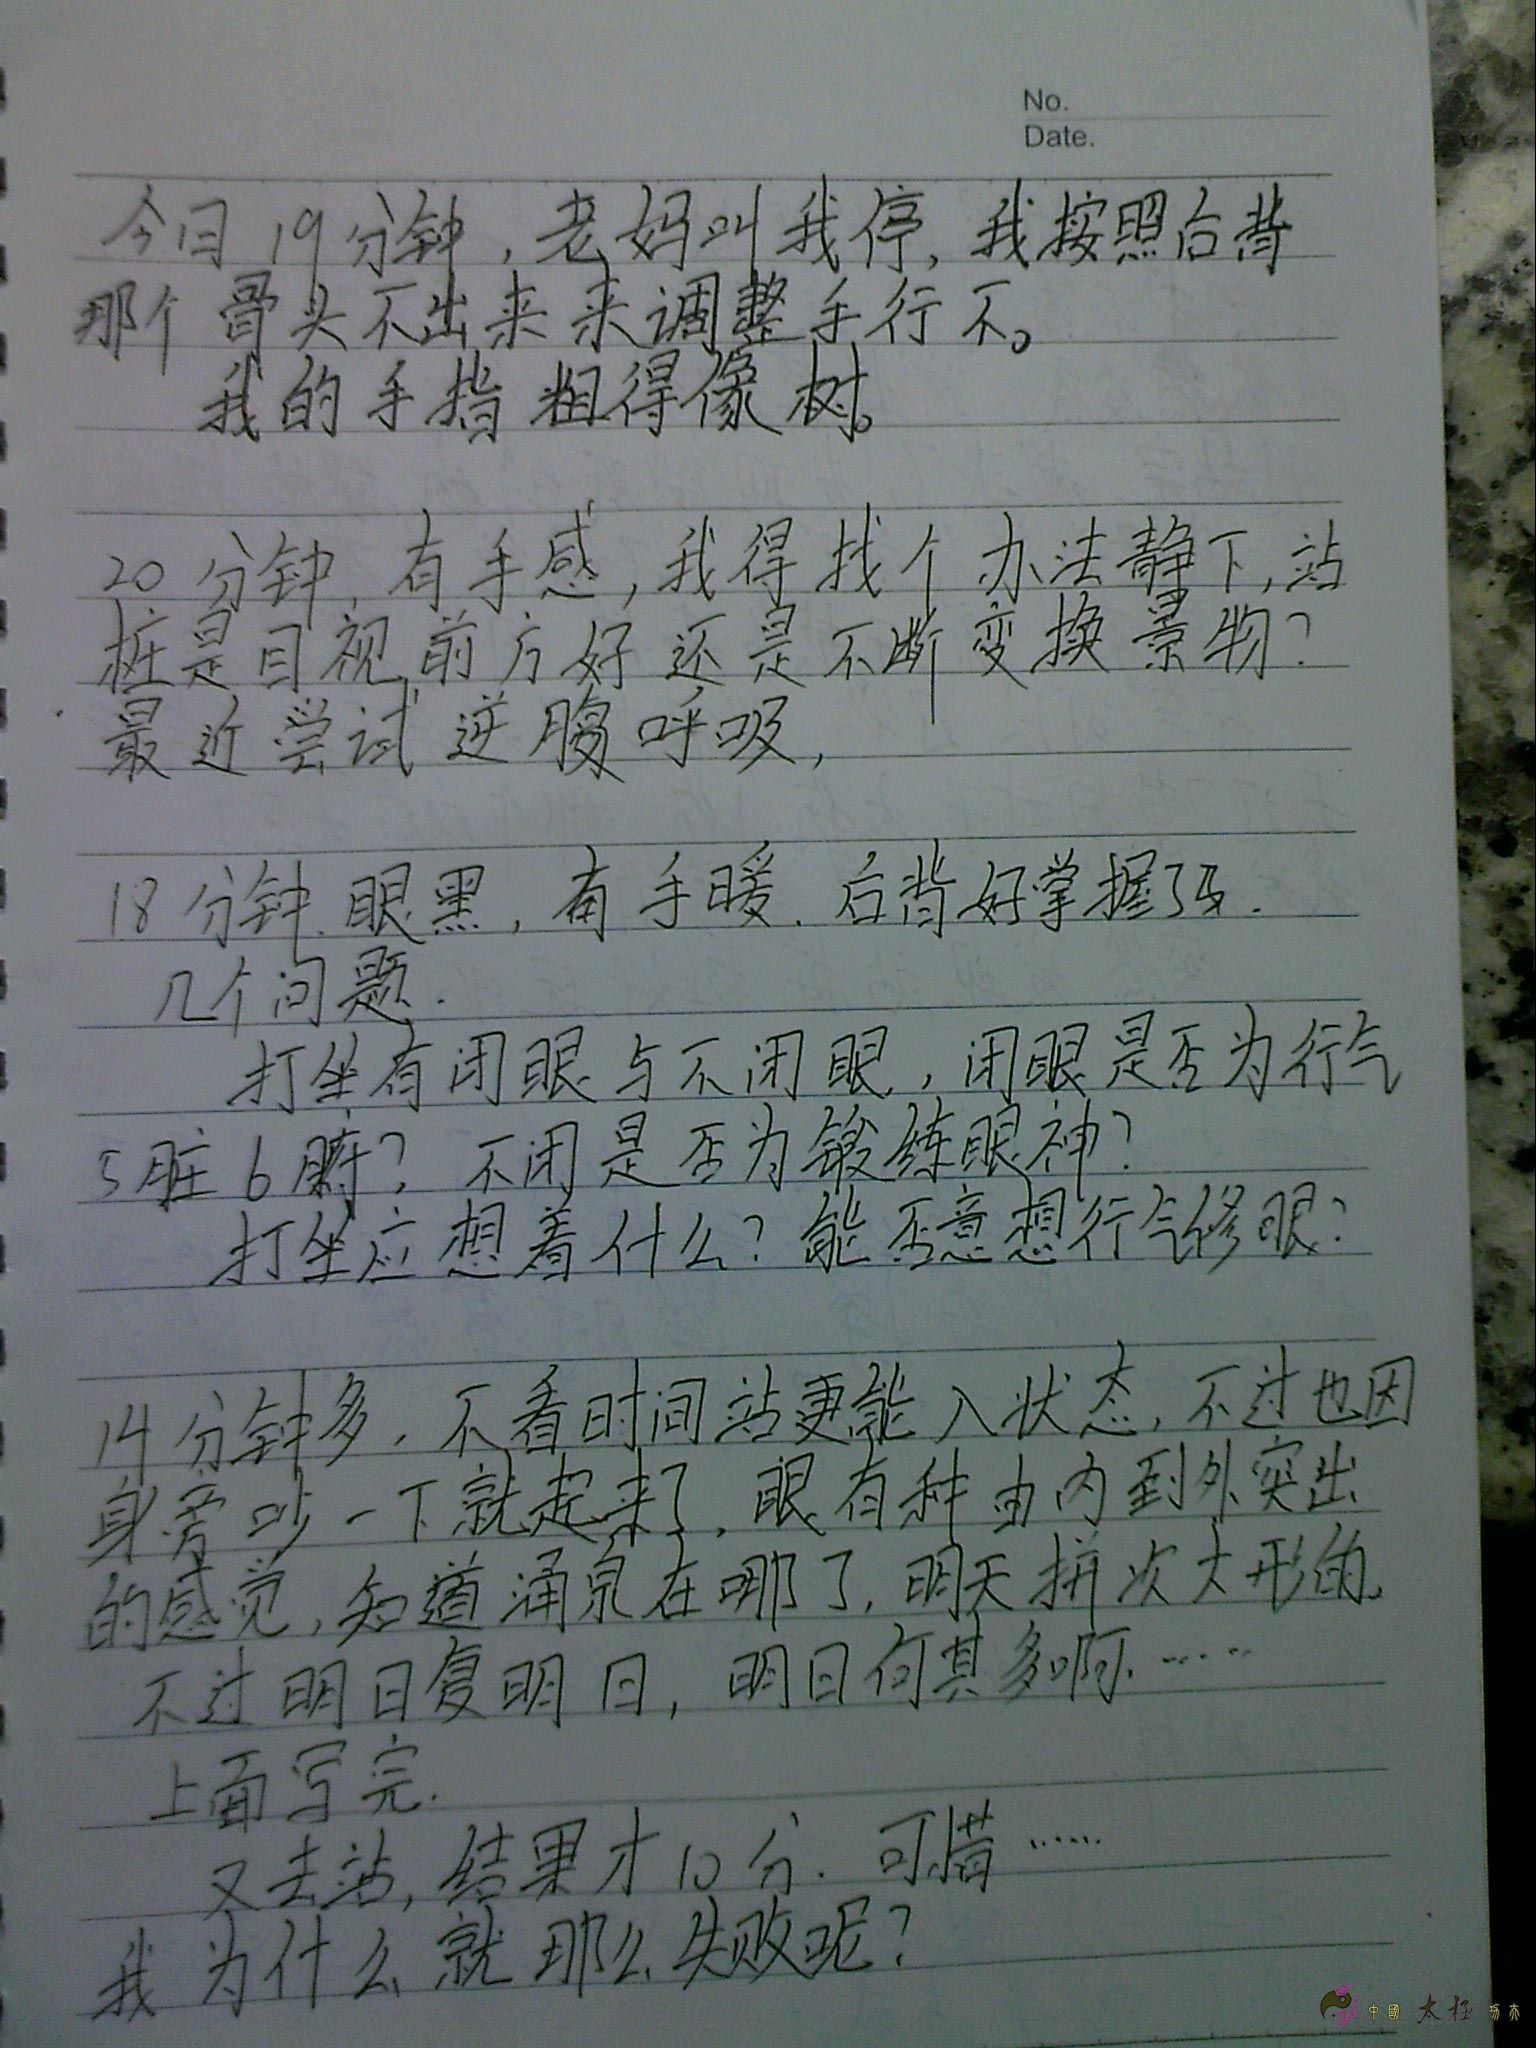 No.
Date.
今日19分钟,老妈叫我停,我按照后背
那个骨头不出来来调整手行不。
我的手指粗得像树。
20分钟,有手感,我得找个办法静下,站
桩是目视前方好还是不断变换景物?
最近尝试逆腹呼吸,
18分钟.眼黑,有手暖.后背好掌握了
几个问题.
打坐有闭眼与不闭眼,闭眼是否为行气
5脏6腑?不闭是否为锻练眼神?
打坐应想着什么?能否意想行气修眼?
14分钟多.不看时间站更能入状态,不过也因
身旁吵一下就起来了.眼有种由内到外突出
的感觉,知道涌泉在哪了.明天拼次大形的。
不过明日复明日,明日何其多啊......
上面写完.
又去站,结果才10分.可惜......
我为什么就那么失败呢?
中國太極功夫